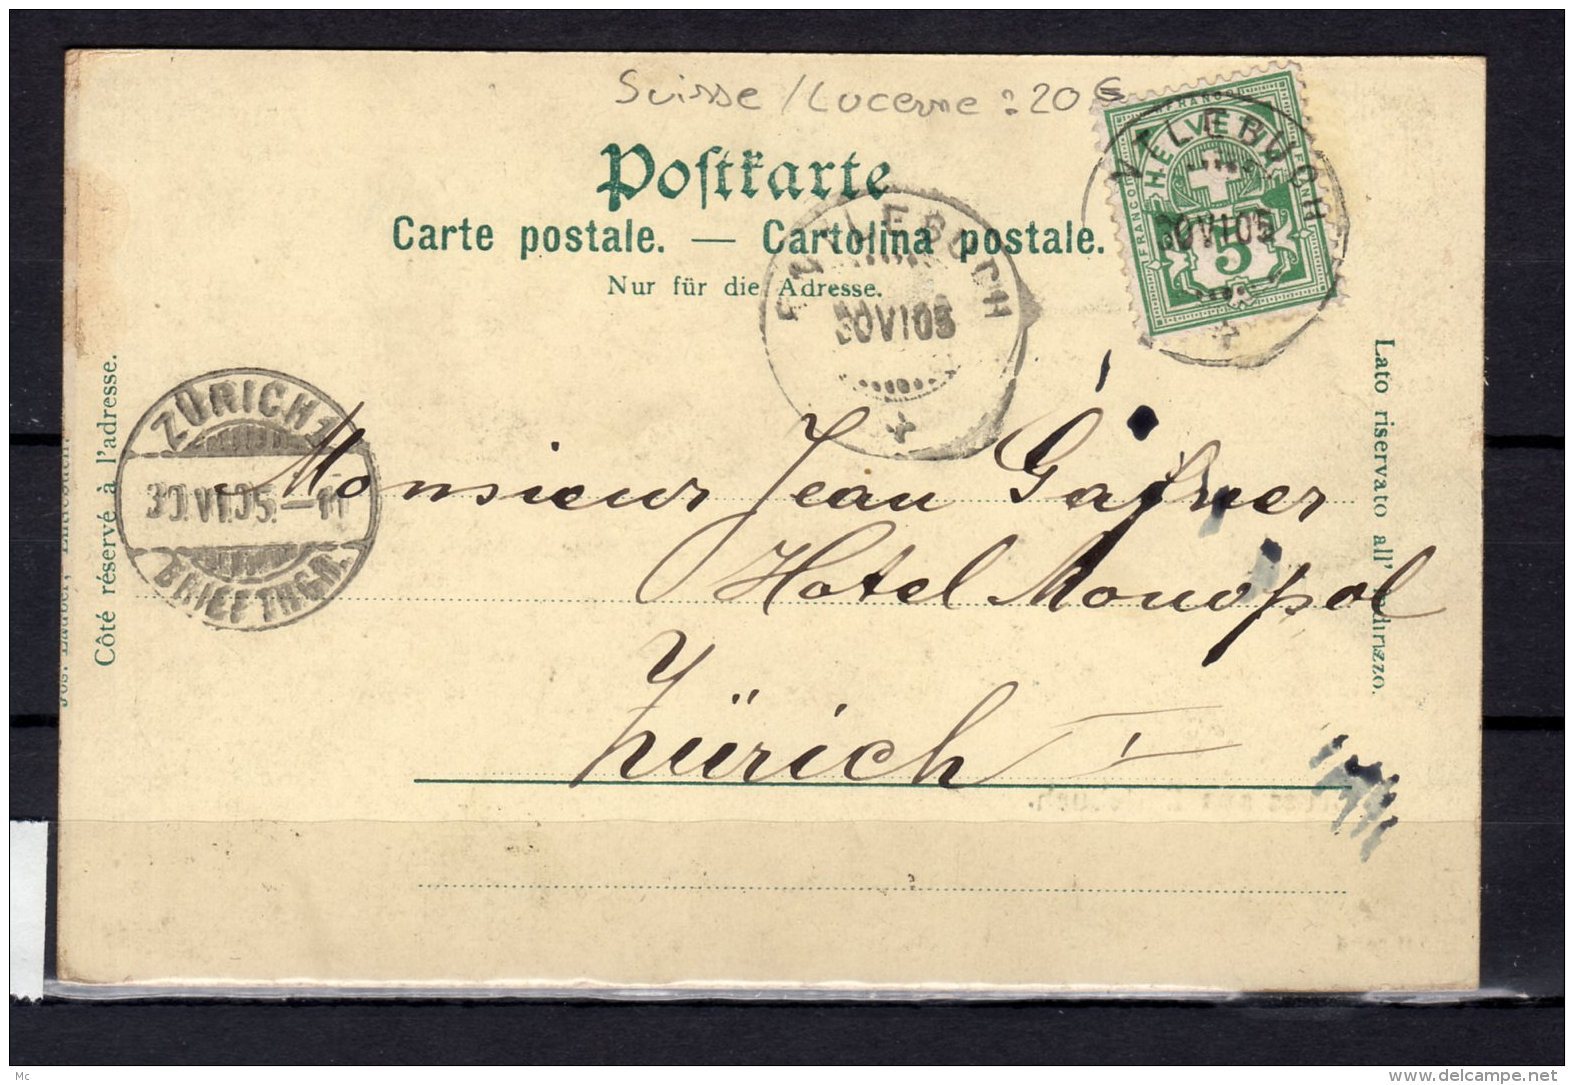 Suisse / Lucerne : 20 €
Postkarte
Carte postale. — Cartolina postale.
Nur für die Adresse.
FRANCO
HELVETIA
FRANCO
FRANCO
5
30 VI 05
ENTLEBUCH
30 VI 05
ZÜRICH 1
30.VI.05.–11
BRIEFTRGR.
Côté réservé à l'adresse.
Lato riservato all'indirizzo.
Jos. Lauber,
Monsieur Jean Gafner
Hotel Monopol
Zürich I
Mc
www.delcampe.net